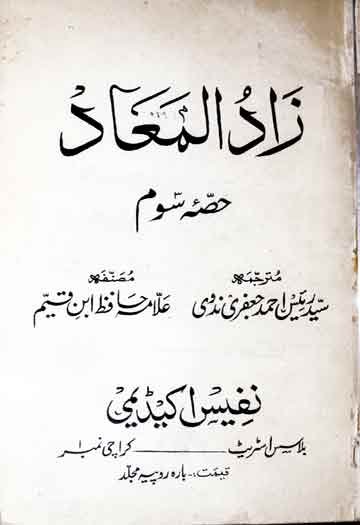 زَادُ المَعَاد
حصّۂ سوم
مترجمہ مصنفہ
سید رئیس احمد جعفری ندوی علامہ حافظ ابن قیّم
نفیس اکیڈیمی
بلاسس اسٹریٹ ــــــــ کراچی نمبر ۱
قیمت :۔ بارہ روپیہ مجلّد